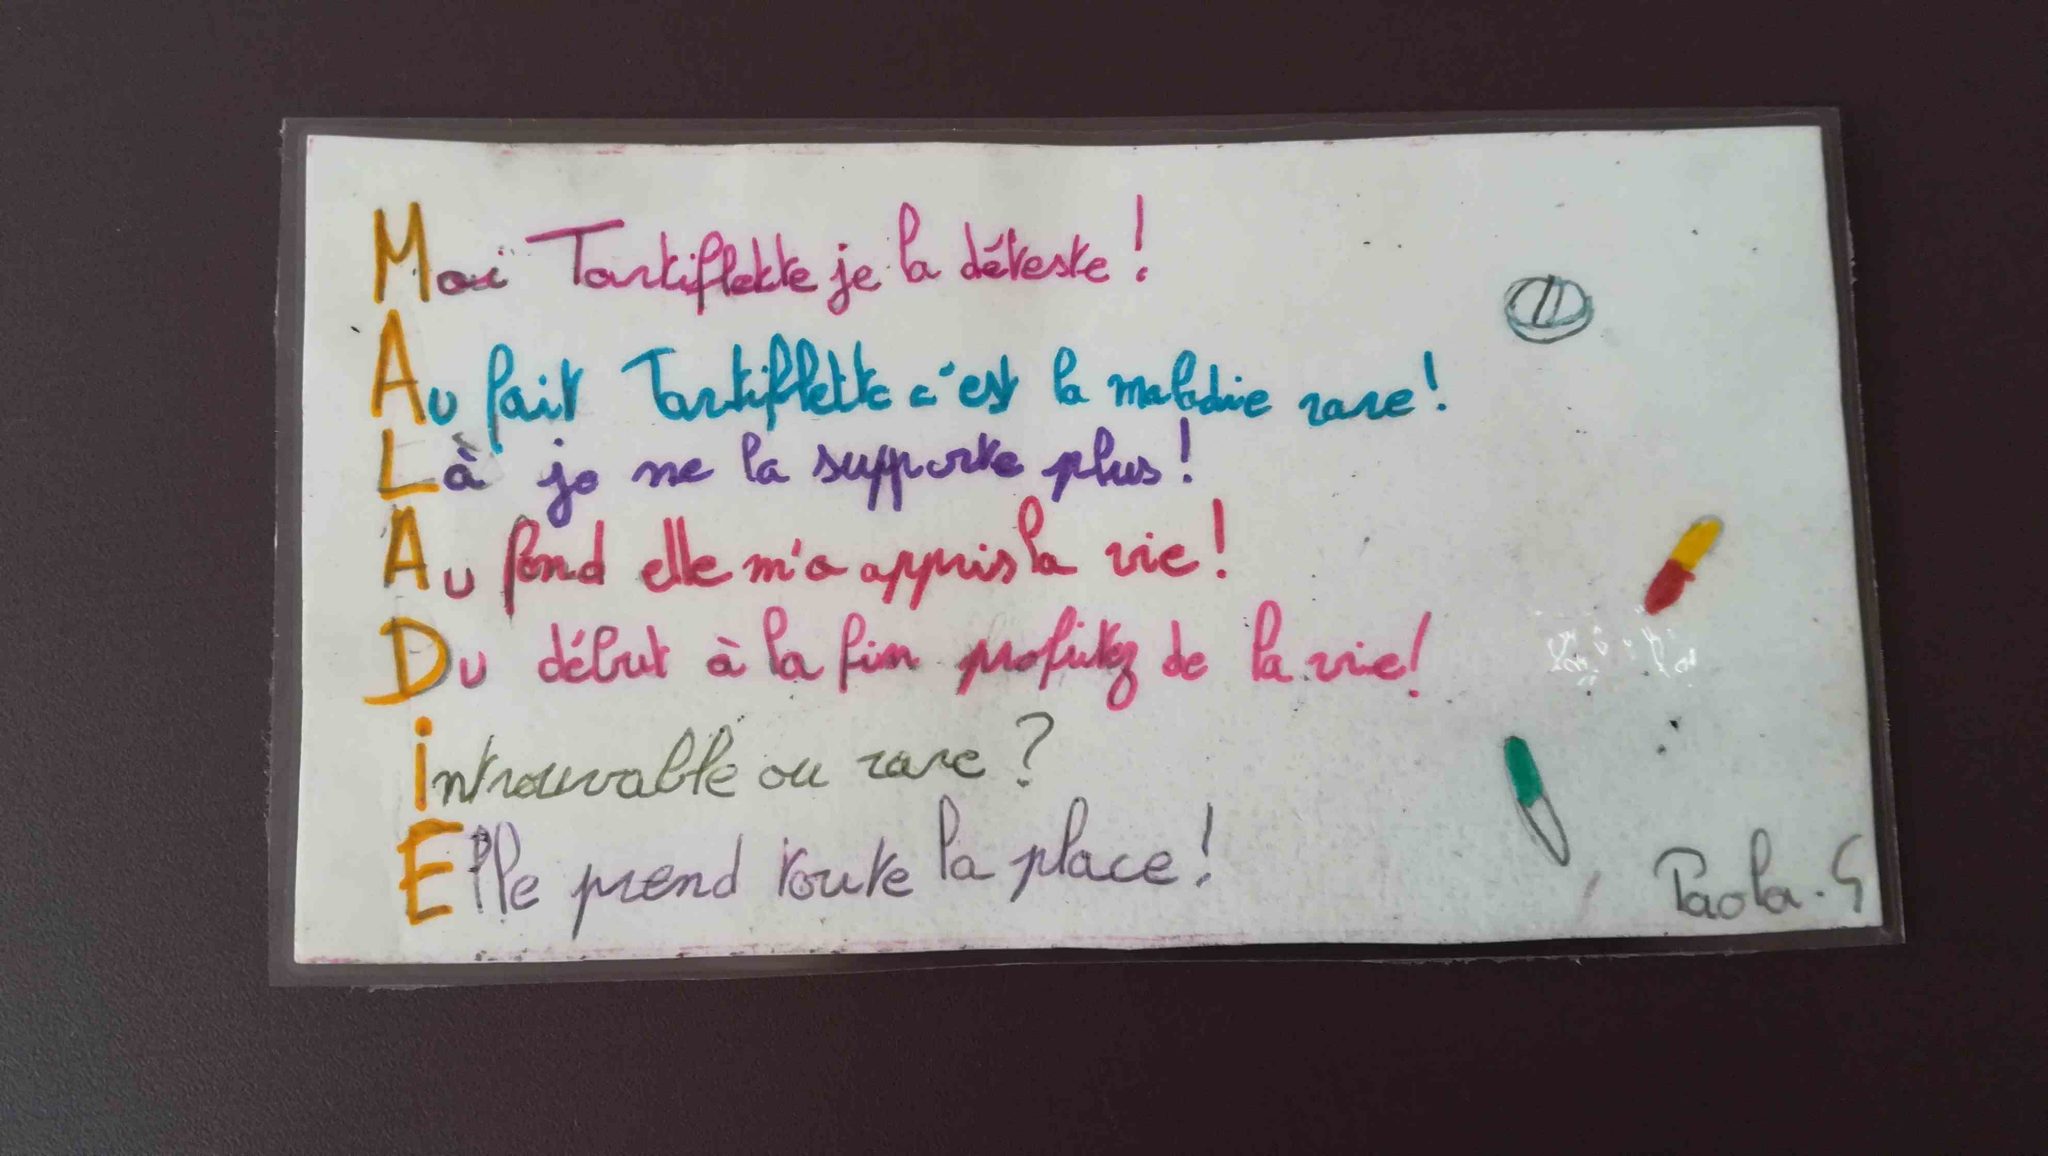 Moi Tartiflette je la déteste !
Au fait Tartiflette c'est la maladie rare !
Là je ne la supporte plus !
Au fond elle m'a appris la vie !
Du début à la fin profitez de la vie !
introuvable ou rare ?
Elle prend toute la place !
Paola.G